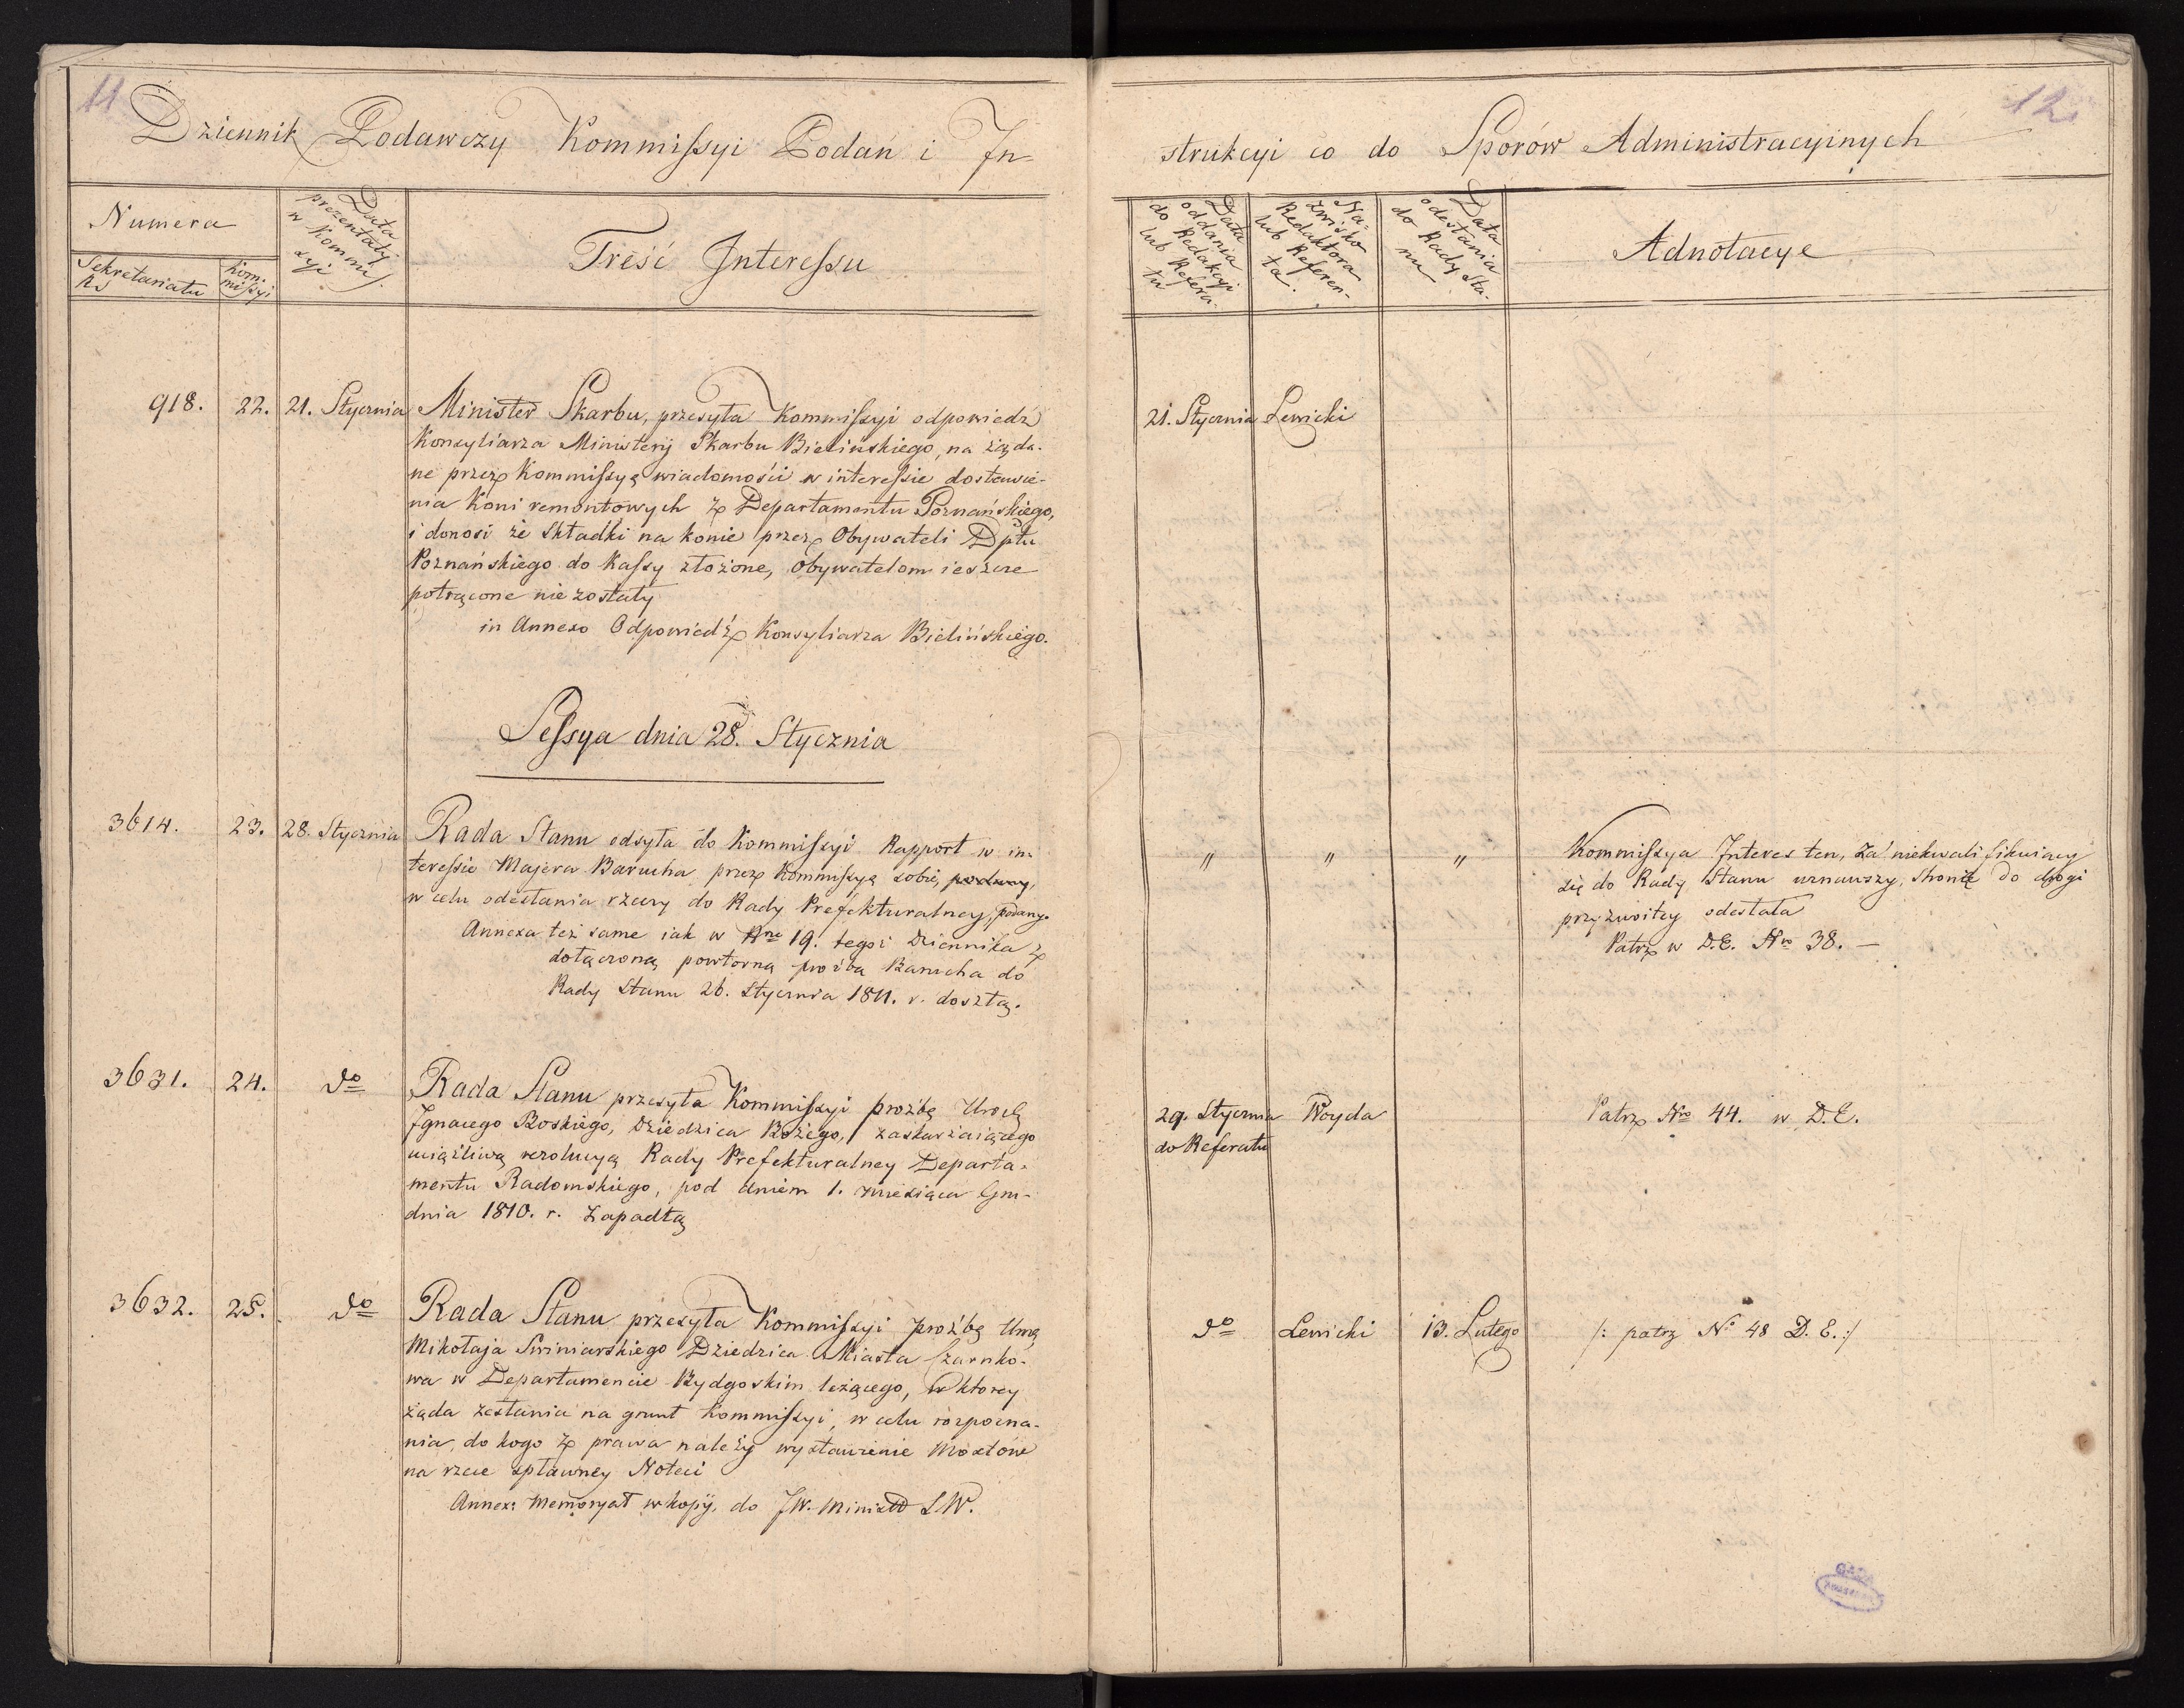 11
Dziennik Podawczy Kommissyi Podań i In
Numera
Sekretariatu
RS
Kom:
missyi
Data
prezentaty
w Kommi
syi
Treść Interessu
918. 22. 21. Stycznia Minister Skarbu, przesyła Kommissyi odpowiedź
Konsyliarza Ministerij Skarbu Bielińskiego, na żąda-
ne przez Kommissyą wiadomości w interessie dostawie-
nia Koni remontowych z Departamentu Poznańskiego,
i donosi że składki na konie przez Obywateli Dptu
Poznańskiego do Kassy złożone, Obywatelom ieszcze
potrącone nie zostały
in Annexo Odpowiedź Konsyliarza Bielińskiego.
Sessya dnia 28. Stycznia
3614. 23. 28. Stycznia Rada Stanu odsyła do Kommissyi Rapport w in-
teressie Majera Barucha przez Kommissyą sobie,
w celu odesłania rzeczy do Rady Prefekturalney, podany.
Annexa też same iak w Nrze 19. tegoż Dziennika z
dołączoną powtorną prożbą Barucha do
Rady Stanu 26. Stycznia 1811. r. doszłą.
3631. 24. do Rada Stanu przesyła Kommissyi prożbę Uro
Ignacego Boskiego, Dziedzica Bożego, zaskarżaiącego
uciążliwą rezolucyą Rady Prefekturalney Departa-
mentu Radomskiego, pod dniem 1. miesiąca Gru-
dnia 1810. r. zapadłą
3632. 25. do Rada Stanu przesyła Kommissyi prożbę Urgo
Mikołaja Swiniarskiego Dziedzica Miasta Czarnko-
wa w Departamencie Bydgoskim leżącego, w ktorey
żąda zesłania na grunt Kommissyi, w celu rozpozna-
nia, do kogo z prawa należy wystawienie Mostów
na rzece spławney Noteci
Annexa Memoryał w kopij, do JW. Ministra S.W.
12
strukcyi co do Sporów Administracyinych
Data
oddania
do Redakcyi
lub Refera-
tu
Na-
zwisko
Redaktora
lub Referen-
ta.
Data
odesłania
do Rady Sta-
nu
Adnotacye
21. Stycznia Lewicki
" " " Kommissya Interes ten, za niekwalifikuiący
się do Rady Stanu uznawszy, Stronie do drogi
przyzwoitey odesłała
Patrz w D.E. Nro 38. —
29. Stycznia Woyda Patrz Nro 44. w D.E.
do Referatu
do Lewicki 13. Lutego /: patrz No 48 D.E. :/